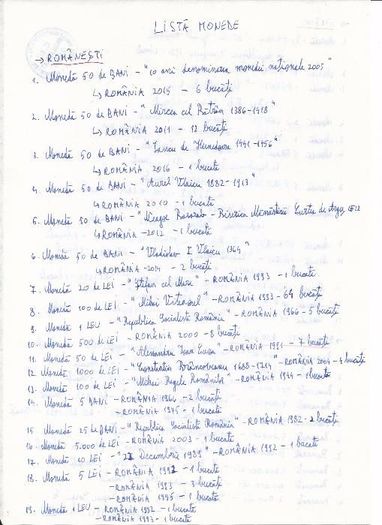 LISTĂ MONEDE
→ ROMÂNEȘTI
1. Monetă 50 de BANI - "10 ani denominarea monedei naționale 2005"
↳ ROMÂNIA 2015 - 6 bucăți
2. Monetă 50 de BANI - "Mircea cel Bătrân 1386-1418"
↳ ROMÂNIA 2011 - 12 bucăți
3. Monetă 50 de BANI - "Iancu de Hunedoara 1441-1456"
↳ ROMÂNIA 2016 - 1 bucată
4. Monetă 50 de BANI - "Aurel Vlaicu 1882-1913"
↳ ROMÂNIA 2010 - 1 bucată
5. Monetă 50 de BANI - "Neagoe Basarab - Biserica Mănăstirii Curtea de Argeș
↳ ROMÂNIA - 2012 - 1 bucată
6. Monetă 50 de BANI - "Vladislav I Vlaicu 1364"
↳ ROMÂNIA - 2014 - 2 bucăți
7. Monetă 20 de LEI - "Ștefan cel Mare" - ROMÂNIA 1993 - 1 bucată
8. Monetă 100 de LEI - "Mihai Viteazul" - ROMÂNIA 1993 - 64 bucăți
9. Monetă 1 LEU - "Republica Socialistă România" - ROMÂNIA 1966 - 5 bucăți
10. Monetă 500 de LEI - ROMÂNIA 2000 - 8 bucăți
11. Monetă 50 de LEI - "Alexandru Ioan Cuza" - ROMÂNIA 1991 - 7 bucăți
12. Monetă 1000 de LEI - "Constantin Brâncoveanu 1688-1714" - ROMÂNIA 2004 - 4 bucăți
13. Monetă 100 de LEI - "Mihai Regele Românilor" - ROMÂNIA 1944 - 1 bucată
14. Monetă 5 BANI - ROMÂNIA 1966 - 2 bucăți
- ROMÂNIA 1975 - 1 bucată
15. Monetă 25 de BANI - "Republica Socialistă România" - ROMÂNIA 1982 - 2 bucăți
16. Monetă 5.000 de LEI - ROMÂNIA 2003 - 1 bucată
17. Monetă 10 LEI - "22 Decembrie 1989" - ROMÂNIA 1992 - 1 bucată
18. Monetă 5 LEI - ROMÂNIA 1992 - 1 bucată
- ROMÂNIA 1993 - 3 bucăți
- ROMÂNIA 1995 - 1 bucată
19. Monetă 1 LEU - ROMÂNIA 1992 - 1 bucată
- ROMÂNIA 1993 - 1 bucată